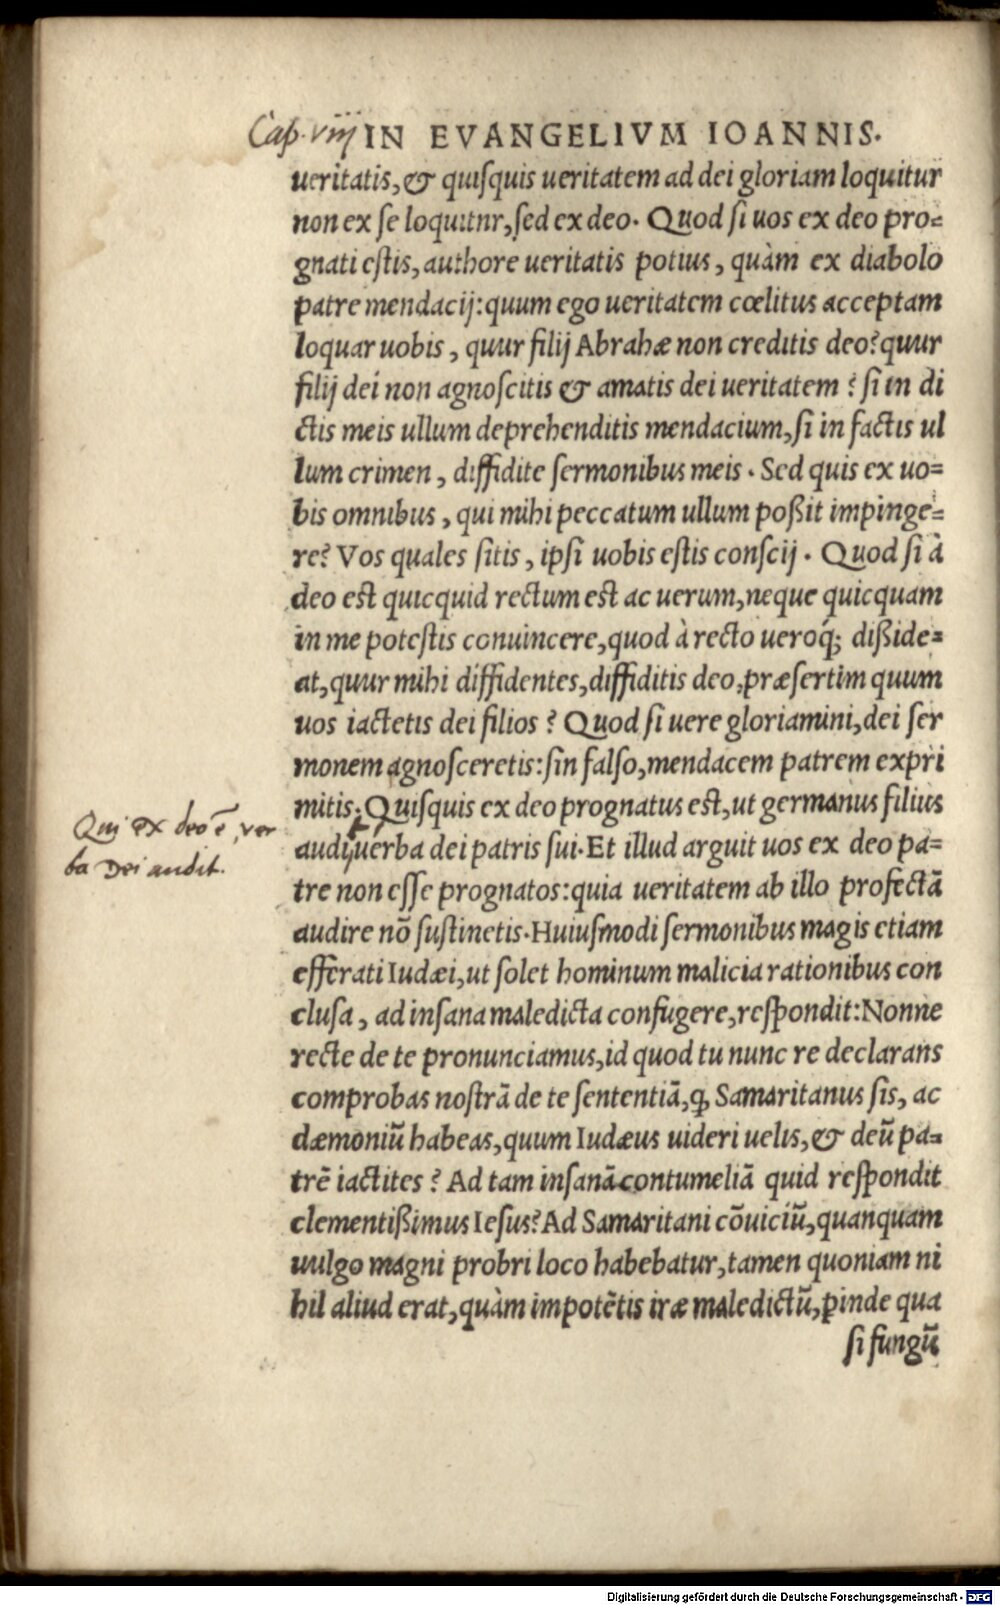 Cap. viij IN EVANGELIVM IOANNIS.
ueritatis, & quiſquis ueritatem ad dei gloriam loquitur
non ex ſe loquitnr, ſed ex deo. Quod ſi uos ex deo pro=
gnati eſtis, authore ueritatis potius, quàm ex diabolo
patre mendacij: quum ego ueritatem cœlitus acceptam
loquar uobis, quur filij Abrahæ non creditis deo? quur
filij dei non agnoſcitis & amatis dei ueritatem? ſi in di
ctis meis ullum deprehenditis mendacium, ſi in factis ul
lum crimen, diffidite ſermonibus meis. Sed quis ex uo=
bis omnibus, qui mihi peccatum ullum poßit impinge=
re? Vos quales ſitis, ipſi uobis eſtis conſcij. Quod ſi à
deo eſt quicquid rectum eſt ac uerum, neque quicquam
in me poteſtis conuincere, quod à recto ueroq́; dißide=
at, quur mihi diffidentes, diffiditis deo, præſertim quum
uos iactetis dei filios? Quod ſi uere gloriamini, dei ſer
monem agnoſceretis: ſin falſo, mendacem patrem expri
mitis: Quiſquis ex deo prognatus eſt, ut germanus filius
Qui ex deo ē, ver
ba Dei audit.
audit uerba dei patris ſui. Et illud arguit uos ex deo pa=
tre non eſſe prognatos: quia ueritatem ab illo profectā
audire nō ſuſtinetis. Huiuſmodi ſermonibus magis etiam
efferati Iudæi, ut ſolet hominum malicia rationibus con
cluſa, ad inſana maledicta confugere, reſpondit: Nonne
recte de te pronunciamus, id quod tu nunc re declarans
comprobas noſtrā de te ſententiā, ꝙ Samaritanus ſis, ac
dæmoniū habeas, quum Iudæus uideri uelis, & deū pa=
trē iactites? Ad tam inſanā contumeliā quid reſpondit
clementißimus Ieſus? Ad Samaritani cōuiciū, quanquam
uulgo magni probri loco habebatur, tamen quoniam ni
hil aliud erat, quàm impotētis iræ maledictū, ꝓinde qua
ſi fungū
Digitalisierung gefördert durch die Deutsche Forschungsgemeinschaft - DFG